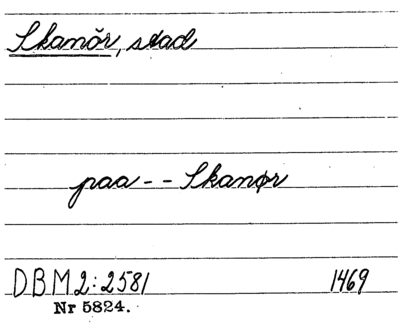 Skanör, stad
paa - - Skanør
DBM 2:2581 1469
Nr 5824.